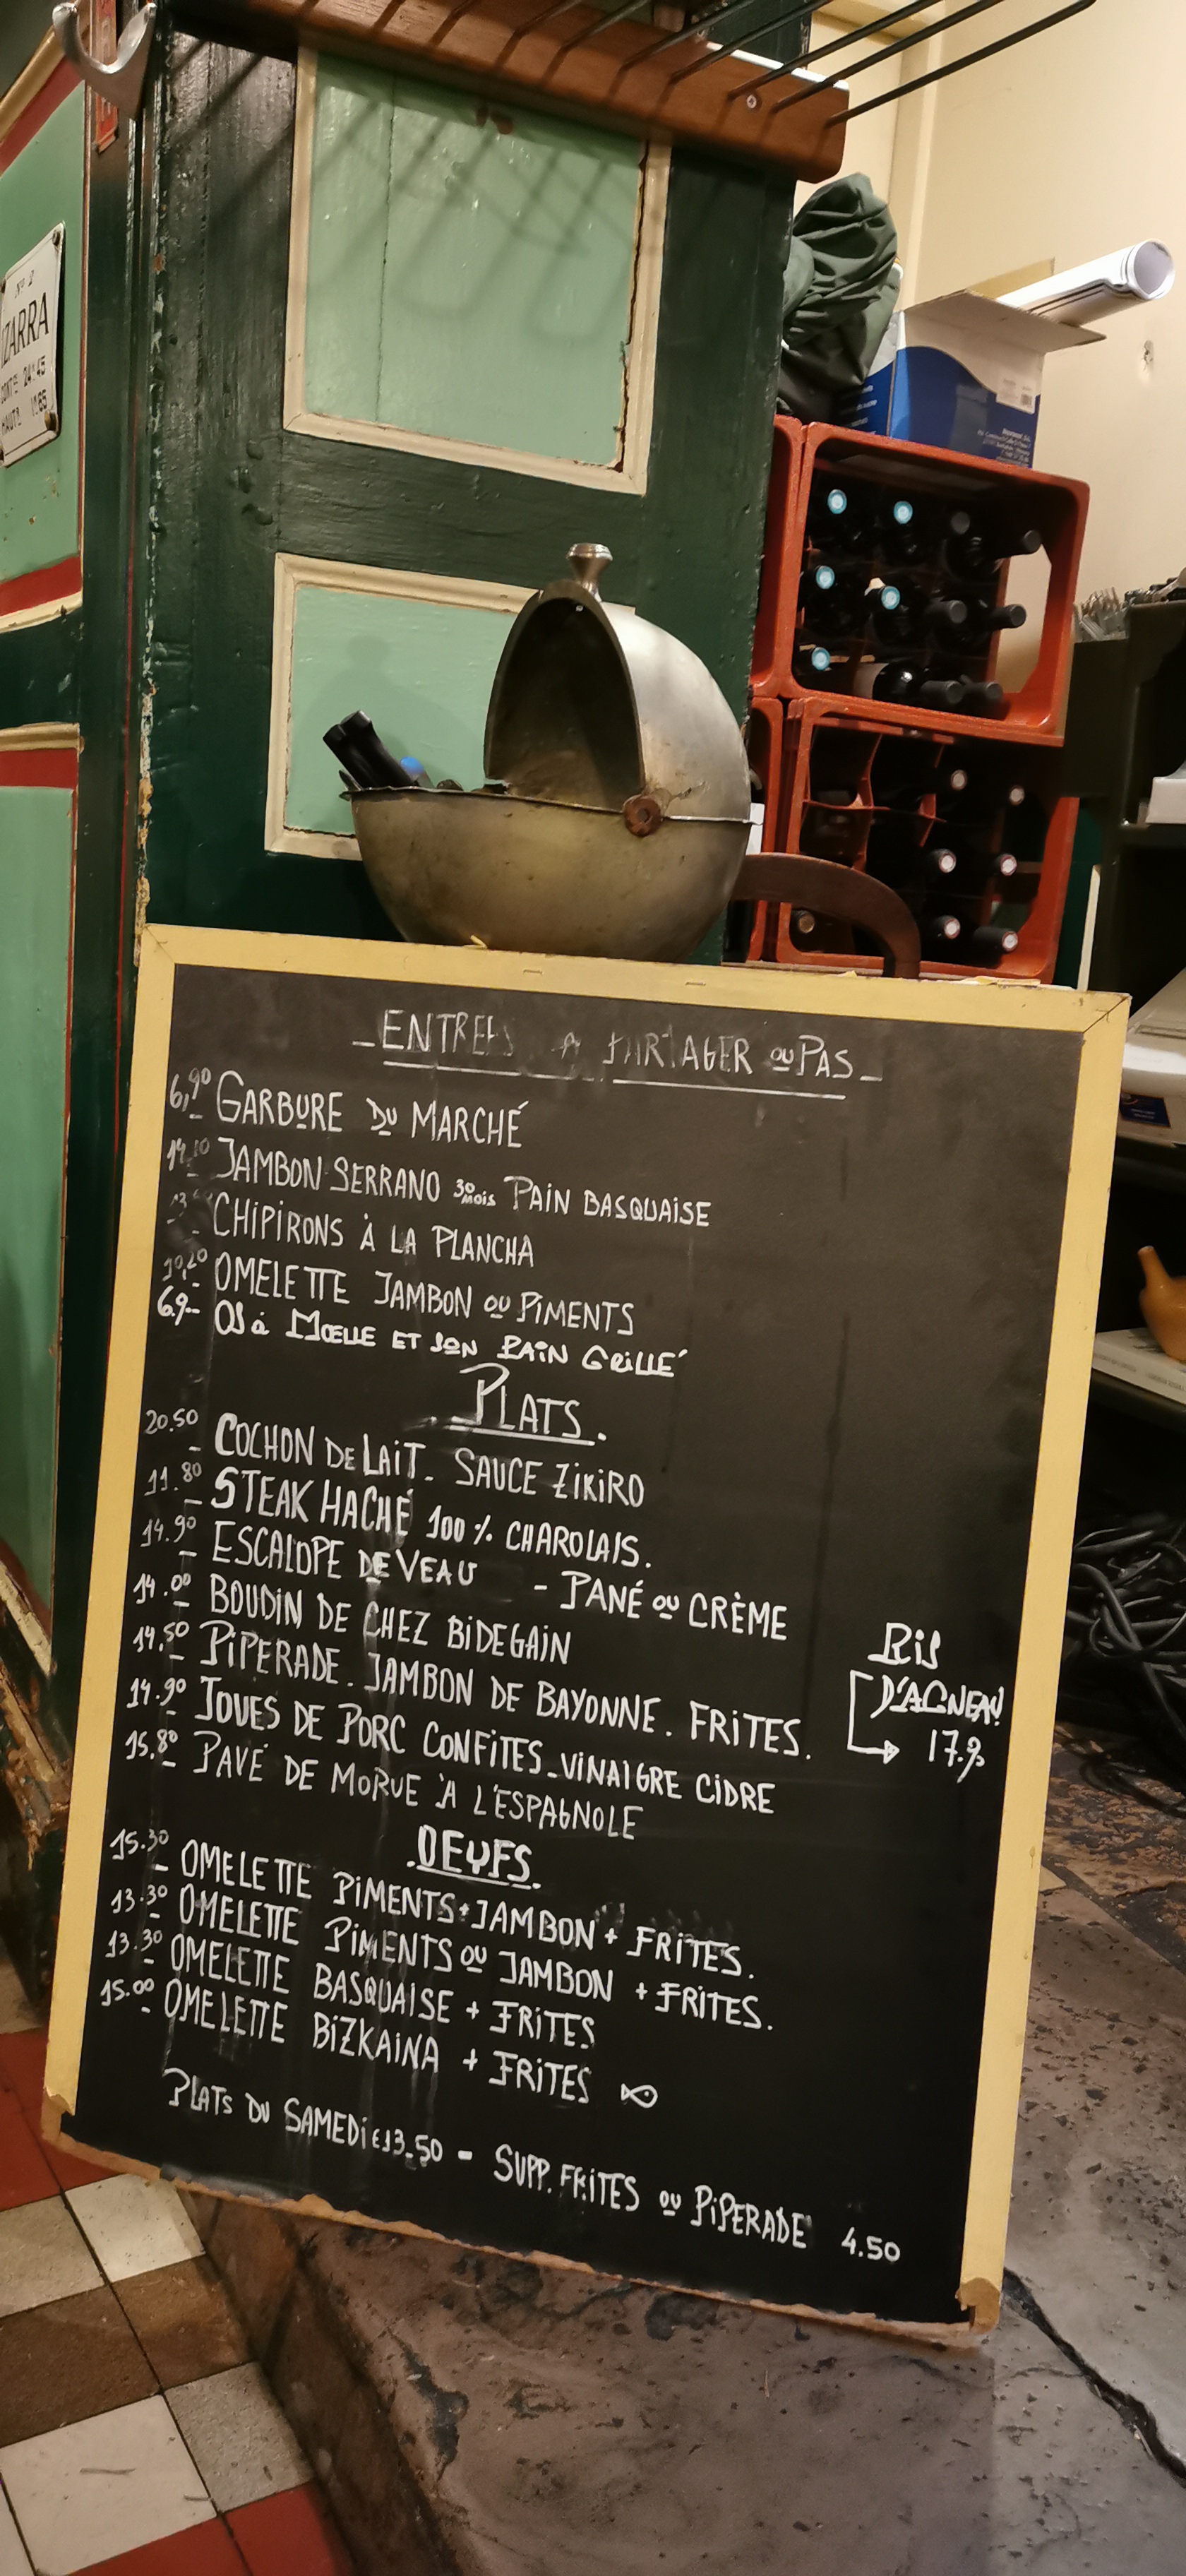 N° 2
IZARRA
- ENTREES A PARTAGER OU PAS -
6,90 GARBURE DU MARCHÉ
14,10 JAMBON SERRANO 30 MOIS PAIN BASQUAISE
CHIPIRONS À LA PLANCHA
10,20 OMELETTE JAMBON OU PIMENTS
6.9- OS à MOELLE ET SON PAIN GRILLÉ
PLATS.
20.50 - COCHON DE LAIT. SAUCE ZIKIRO
11.80 - STEAK HACHÉ 100% CHAROLAIS.
14.90 - ESCALOPE DE VEAU - PANÉ OU CRÈME
14.00 - BOUDIN DE CHEZ BIDEGAIN
14.50 - PIPERADE. JAMBON DE BAYONNE. FRITES.
14.90 - JOUES DE PORC CONFITES - VINAIGRE CIDRE
15.80 - PAVÉ DE MORUE À L'ESPAGNOLE
RIS
D'AGNEAU
→ 17.9
.OEUFS.
15.30 - OMELETTE PIMENTS + JAMBON + FRITES.
13.30 - OMELETTE PIMENTS OU JAMBON + FRITES.
13.30 - OMELETTE BASQUAISE + FRITES
15.00 - OMELETTE BIZKAINA + FRITES
PLATS DU SAMEDI €13.50 - SUPP. FRITES OU PIPERADE 4.50